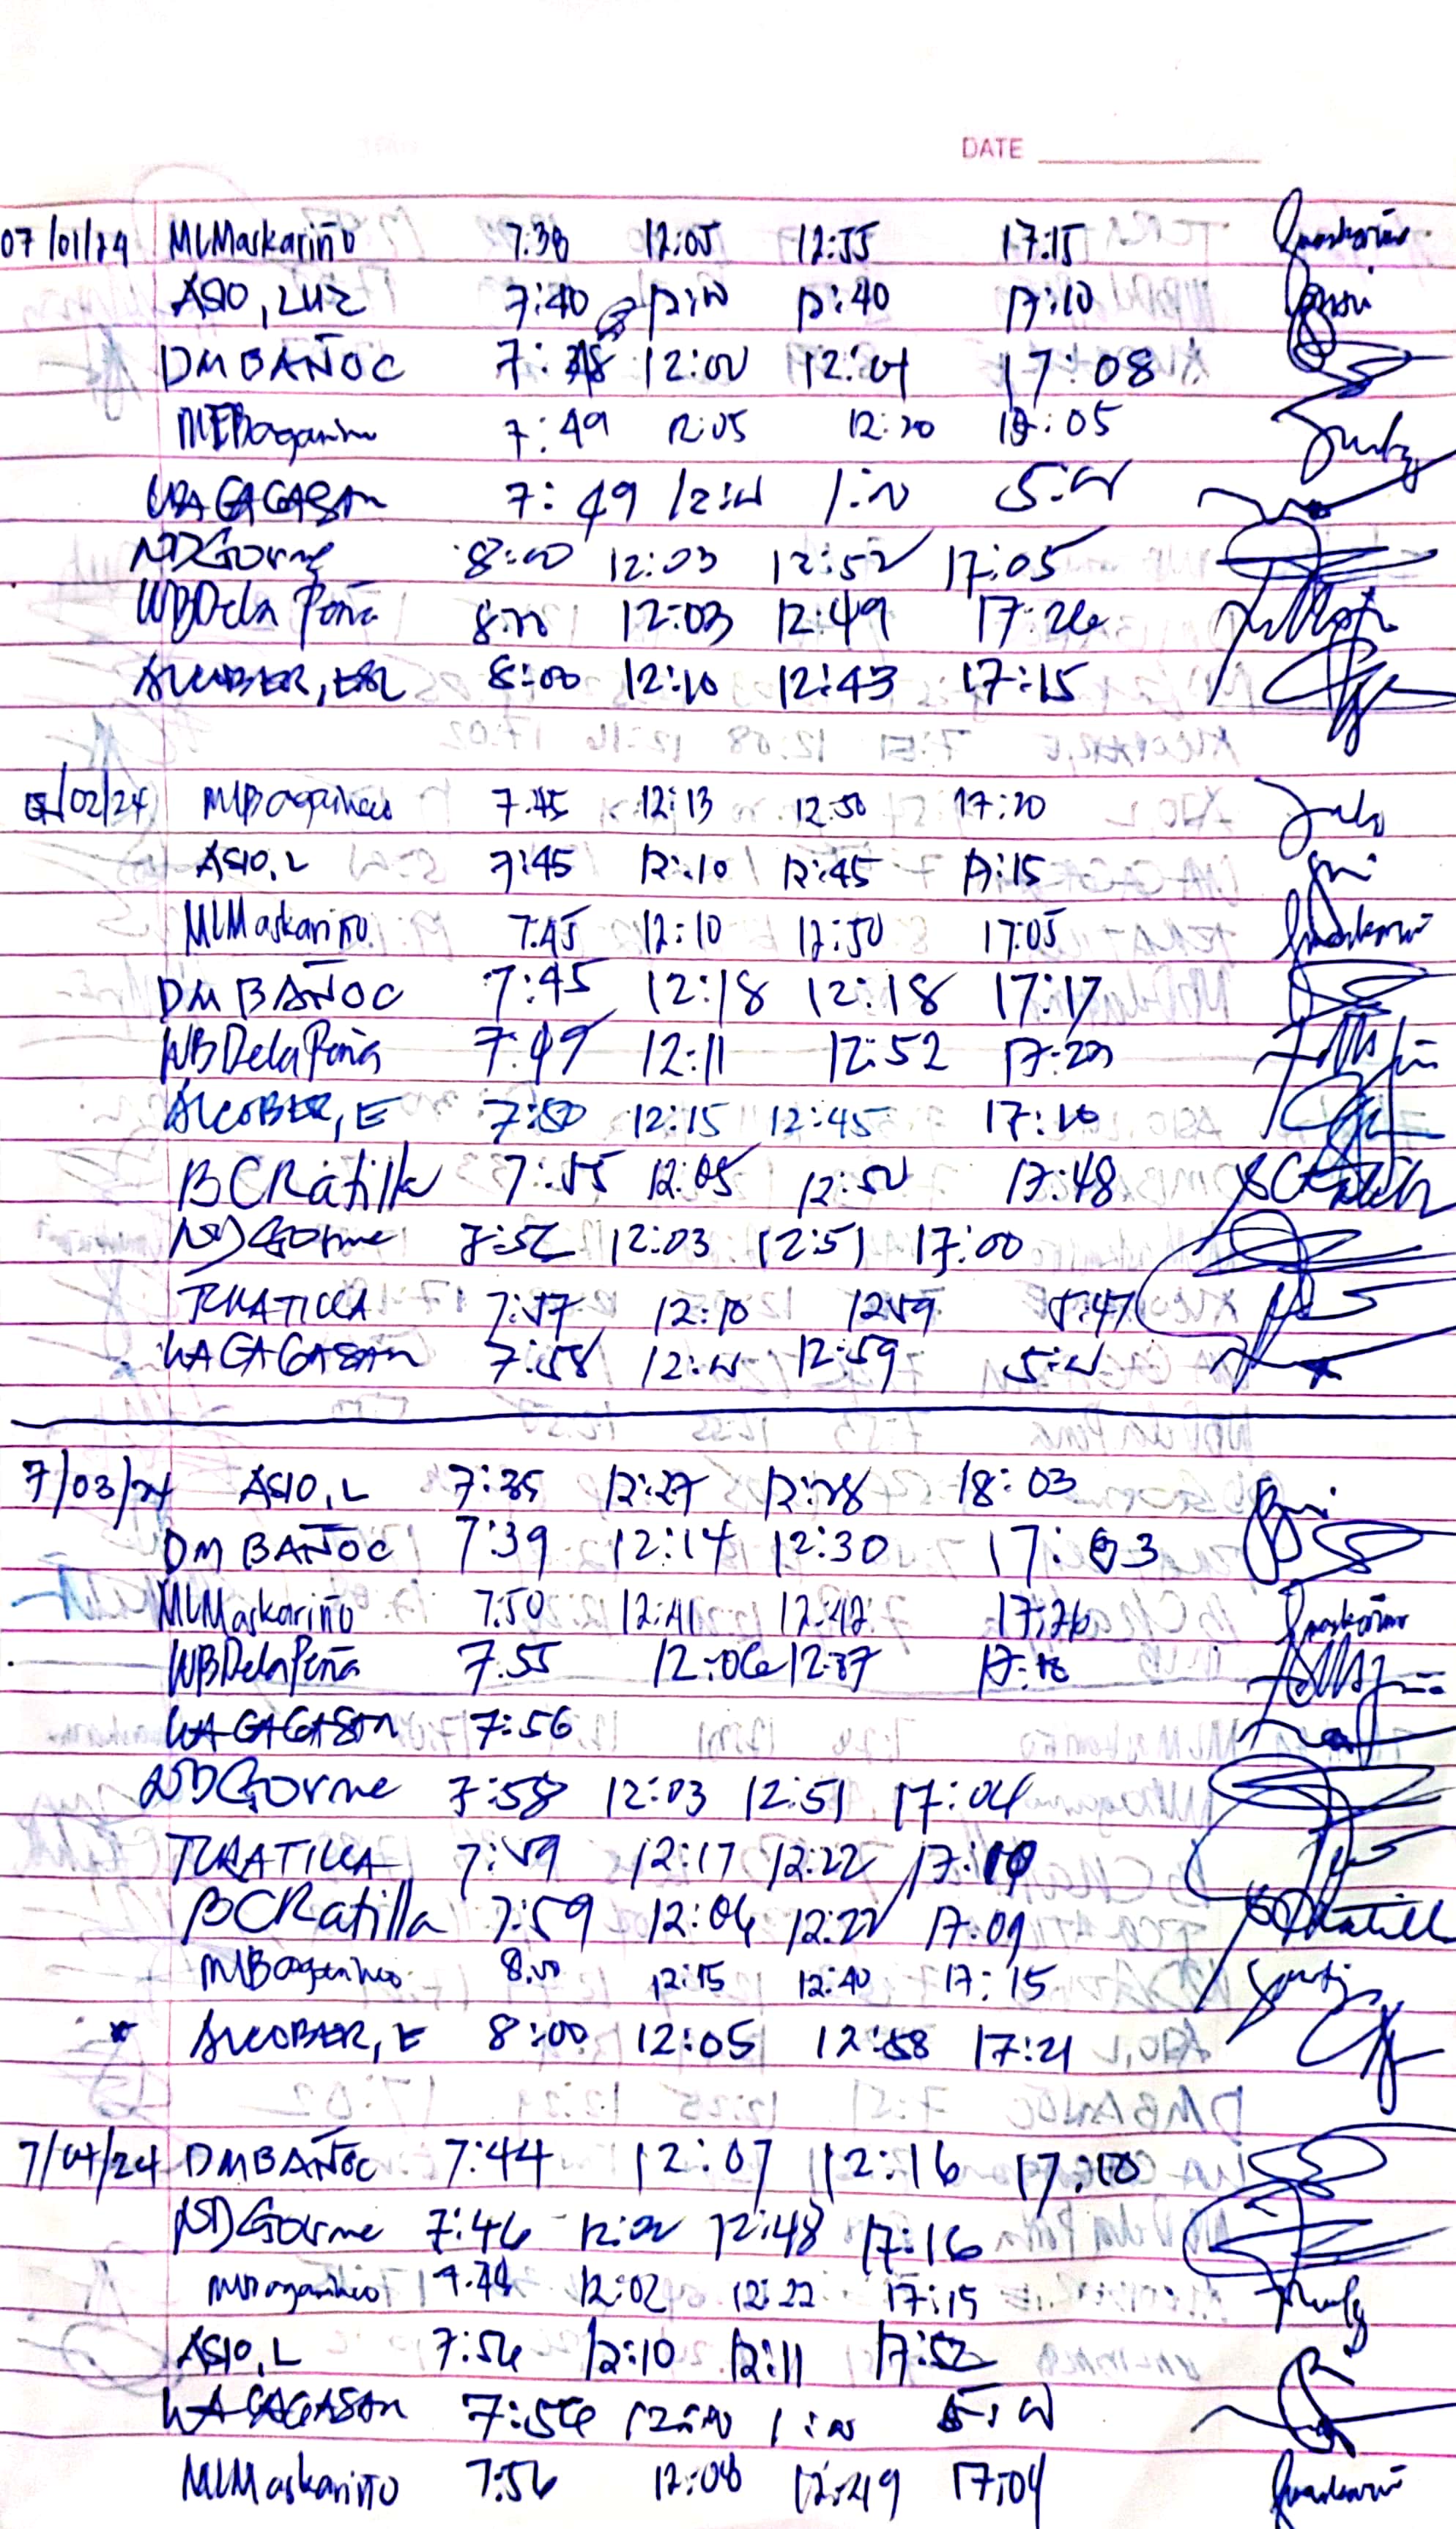 DATE
07/01/24 MLMaskariño 7:38 12:05 12:55 17:15
ASIO, LUZ 7:40 12:10 12:40 17:10
DMBAÑOC 7:48 12:00 12:01 17:08
7:49 12:05 12:20 17:05
7:49 12:00 1:00 5:00
NDGorme 8:00 12:03 12:52 17:05
WBDela Peña 8:00 12:03 12:49 17:26
ALCOBER, 8:00 12:10 12:43 17:15
7/02/24 7:45 12:13 12:50 17:20
ASIO, L 7:45 12:10 12:45 17:15
MLMaskariño 7:45 12:10 12:50 17:05
DMBAÑOC 7:45 12:18 12:18 17:17
WBDelaPeña 7:49 12:11 12:52
ALCOBER, E 7:50 12:15 12:45 17:10
BCRatilla 7:55 12:05 12:50 17:48
NDGorme 7:52 12:03 12:51 17:00
TCRATILLA 7:57 12:10 1259 5:47
WAGAGASAN 7:58 12:00 12:59 5:00
7/03/24 ASIO, L 7:35 12:27 12:28 18:03
DMBAÑOC 7:39 12:14 12:30 17:03
MLMaskariño 7:50 12:41 12:42 17:26
WBDelaPeña 7:55 12:06 12:37
WAGAGASAN 7:56
NDGorme 7:58 12:03 12:51 17:04
TCRATILLA 7:59 12:17 12:22
BCRatilla 7:59 12:06 12:22 17:09
8:00 12:15 12:40 17:15
ALCOBER, E 8:00 12:05 12:58 17:21
7/04/24 DMBAÑOC 7:44 12:07 12:16 17:10
NDGorme 7:46 12:02 12:48 17:16
7:48 12:02 12:22 17:15
ASIO, L 7:56 12:10 12:11 17:52
WAGAGASAN 7:56 12:00 1:00 5:00
MLMaskariño 7:56 12:08 12:49 17:04